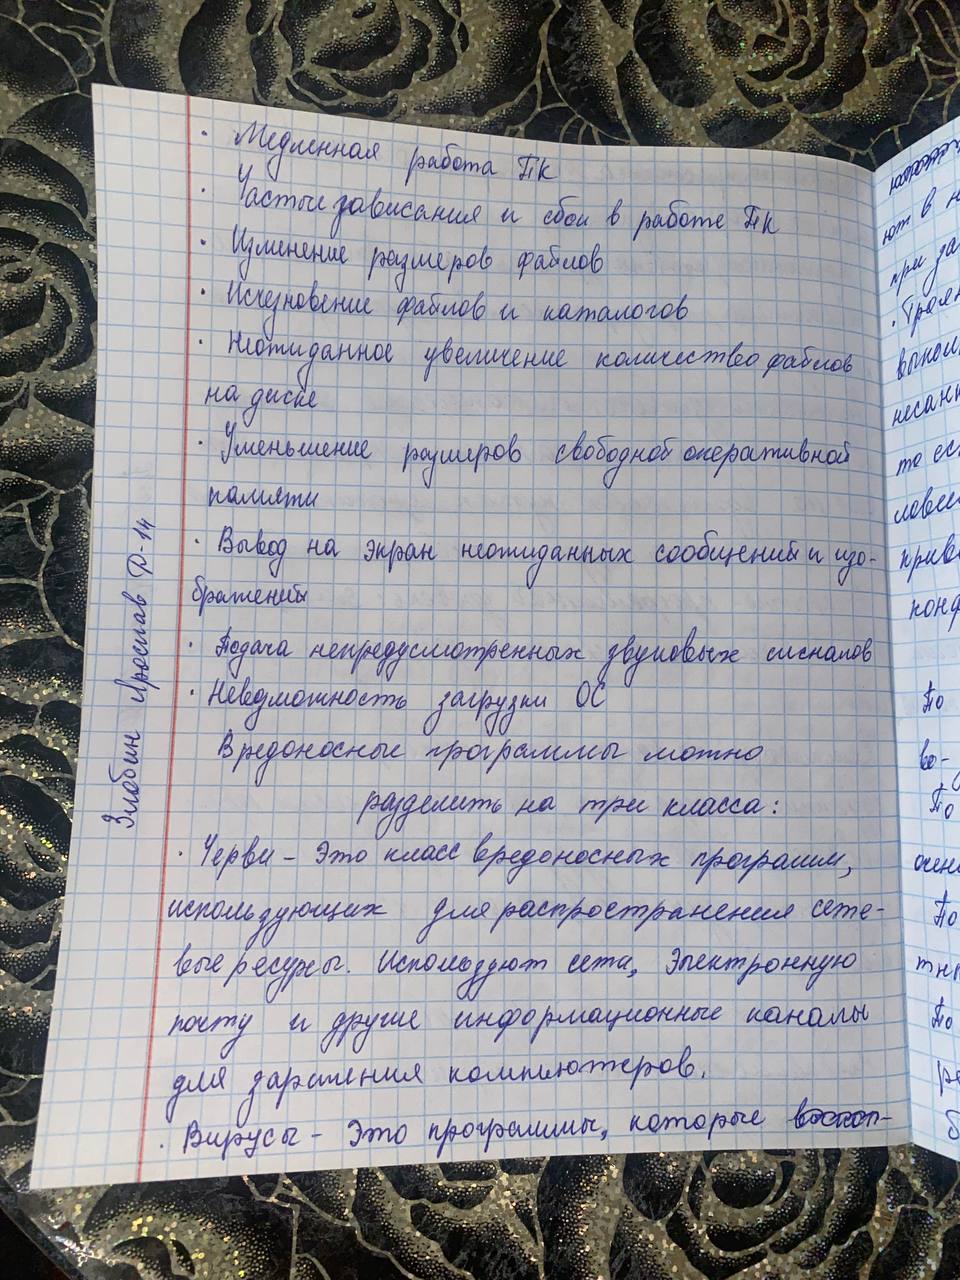 · Медленная работа ПК
· Частые зависания и сбои в работе ПК
· Изменение размеров файлов
· Исчезновение файлов и каталогов
· Неожиданное увеличение количество файлов
на диске
· Уменьшение размеров свободной оперативной
памяти
· Вывод на экран неожиданных сообщений и изо-
бражений
· Подача непредусмотренных звуковых сигналов
· Невозможность загрузки ОС
Вредоносные программы можно
разделить на три класса:
· Черви – Это класс вредоносных программ,
использующих для распространения сете-
вые ресурсы. Используют сети, Электронную
почту и другие информационные каналы
для заражения компьютеров.
· Вирусы – Это программы, которые
Злобин Ярослав Д-14
ют в
при за
· Троян
выпол
несан
то ес
приво
конф
По
во-
По
очень
По
По